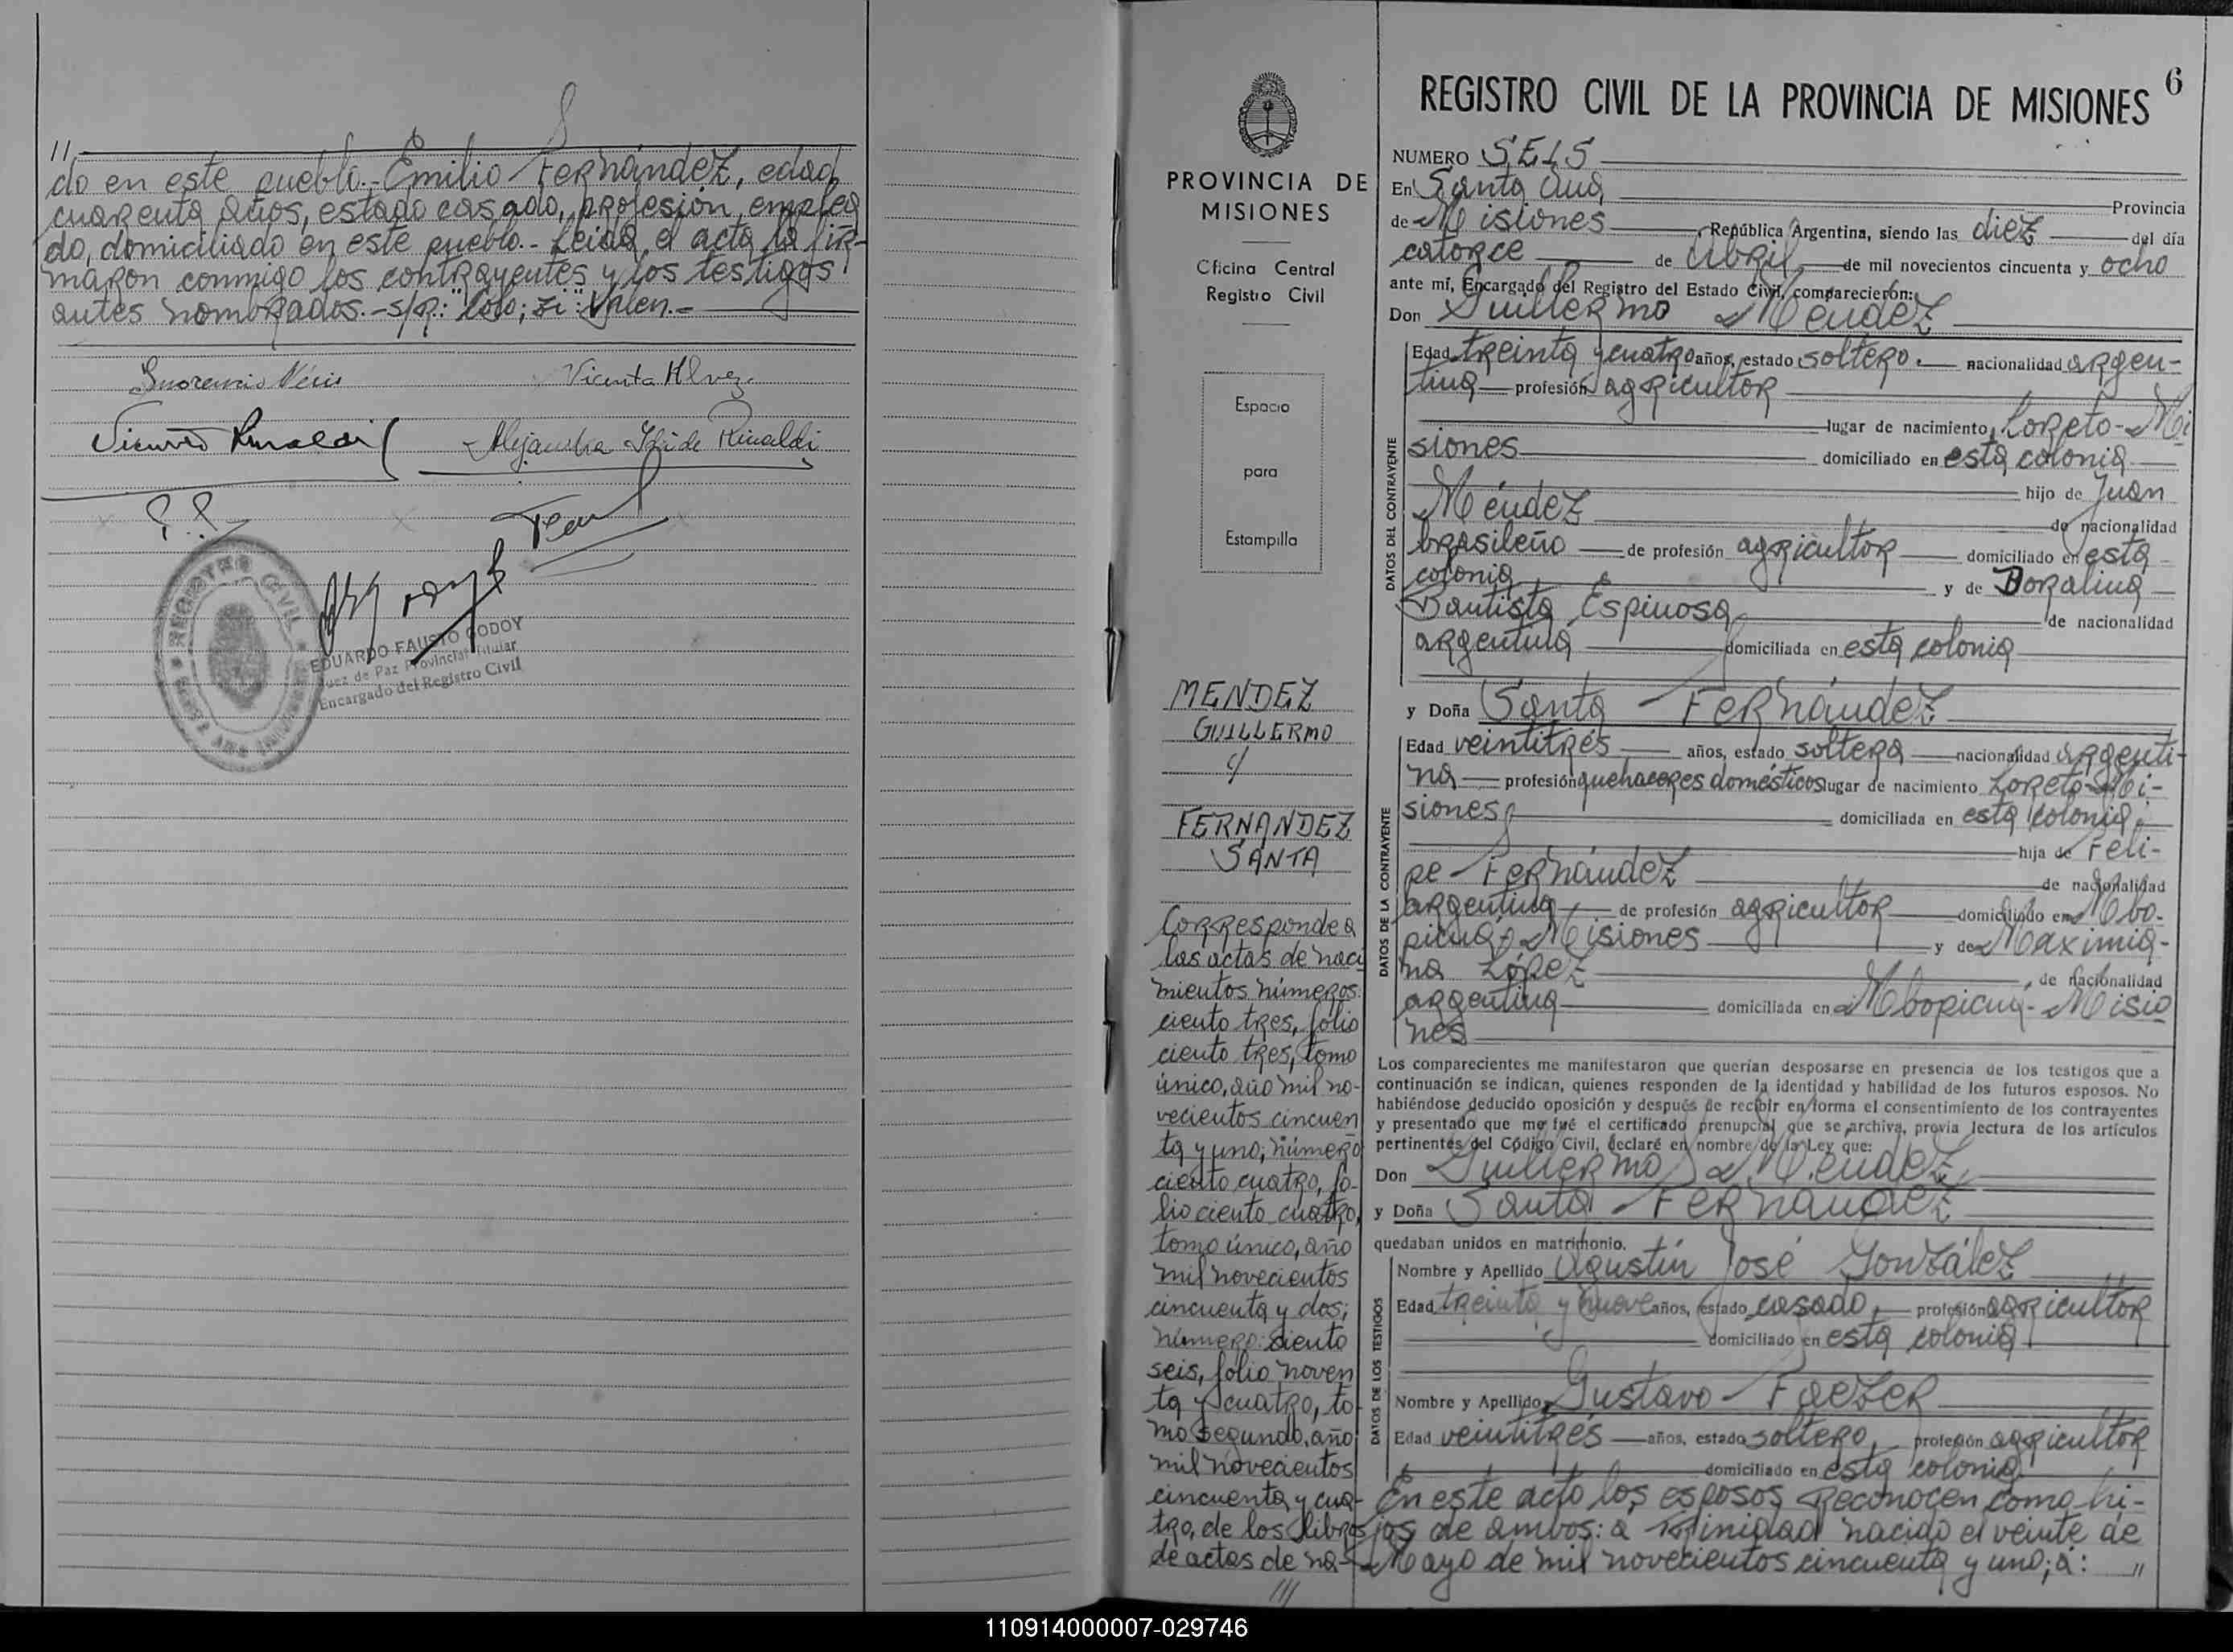 //
do en este pueblo.- Emilio Fernández, edad
cuarenta años, estado casado, profesión emplea
do, domiciliado en este pueblo.- Leida el acta la fir-
maron conmigo los contrayentes y los testigos
antes nombrados.-s/r.:
Vicenta Alvez.
Vicente Rinaldi
Alejandra de Rinaldi
REGISTRO CIVIL
EDUARDO FAUSTO GODOY
Juez de Paz Provincial Titular
Encargado del Registro Civil
PROVINCIA DE
MISIONES
Oficina Central
Registro Civil
Espacio
para
Estampilla
MENDEZ
GUILLERMO
c/
FERNANDEZ
SANTA
Corresponde a
las actas de naci
mientos números:
ciento tres, folio
ciento tres, tomo
único, año mil no-
vecientos cincuen
ta y uno; número
ciento cuatro, fo-
lio ciento cuatro,
tomo único, año
mil novecientos
cincuenta y dos;
número: ciento
seis, folio noven
ta y cuatro, to-
mo segundo, año
mil novecientos
cincuenta y cua-
tro, de los libros
de actas de na-
///
REGISTRO CIVIL DE LA PROVINCIA DE MISIONES
6
NUMERO SEIS
En Santa Ana, Provincia
de Misiones República Argentina, siendo las diez del día
catorce de Abril, de mil novecientos cincuenta y ocho
ante mí, Encargado del Registro del Estado Civil, comparecieron:
Don Guillermo Méndez
DATOS DEL CONTRAYENTE
Edad treinta y cuatro años, estado soltero.- nacionalidad argen-
tina profesión agricultor
lugar de nacimiento Loreto-Mi
siones domiciliado en esta colonia
hijo de Juan
Méndez de nacionalidad
brasileño de profesión agricultor domiciliado en esta
colonia y de Doralina
Bautista Espinosa de nacionalidad
argentina domiciliada en esta colonia
y Doña Santa Fernández
DATOS DE LA CONTRAYENTE
Edad veintitrés años, estado soltera nacionalidad argenti-
na profesión quehaceres domésticos lugar de nacimiento Loreto-Mi-
siones domiciliada en esta colonia.
hija de Feli-
pe Fernández de nacionalidad
argentina de profesión agricultor domiciliado en Mbo-
picuá-Misiones y de Maximia-
na López, de nacionalidad
argentina domiciliada en Mbopicuá-Misio
nes
Los comparecientes me manifestaron que querían desposarse en presencia de los testigos que a
continuación se indican, quienes responden de la identidad y habilidad de los futuros esposos. No
habiéndose deducido oposición y después de recibir en forma el consentimiento de los contrayentes
y presentado que me fué el certificado prenupcial que se archiva, previa lectura de los artículos
pertinentes del Código Civil, declaré en nombre de la Ley que:
Don Guillermo Méndez
y Doña Santa Fernández
quedaban unidos en matrimonio.
DATOS DE LOS TESTIGOS
Nombre y Apellido Agustín José González
Edad treinta y nueve años, estado casado, profesión agricultor
domiciliado en esta colonia
Nombre y Apellido Gustavo Faezer
Edad veintitrés años, estado soltero, profesión agricultor
domiciliado en esta colonia
En este acto los esposos reconocen como hi-
jos de ambos: a Trinidad nacido el veinte de
Mayo de mil novecientos cincuenta y uno; a: //
110914000007-029746